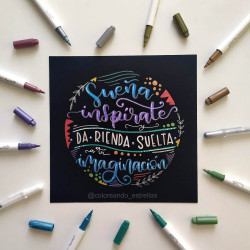 Sueña,
inspírate
y
DA RIENDA SUELTA
a tu
imaginación
@coloreando_estrellas